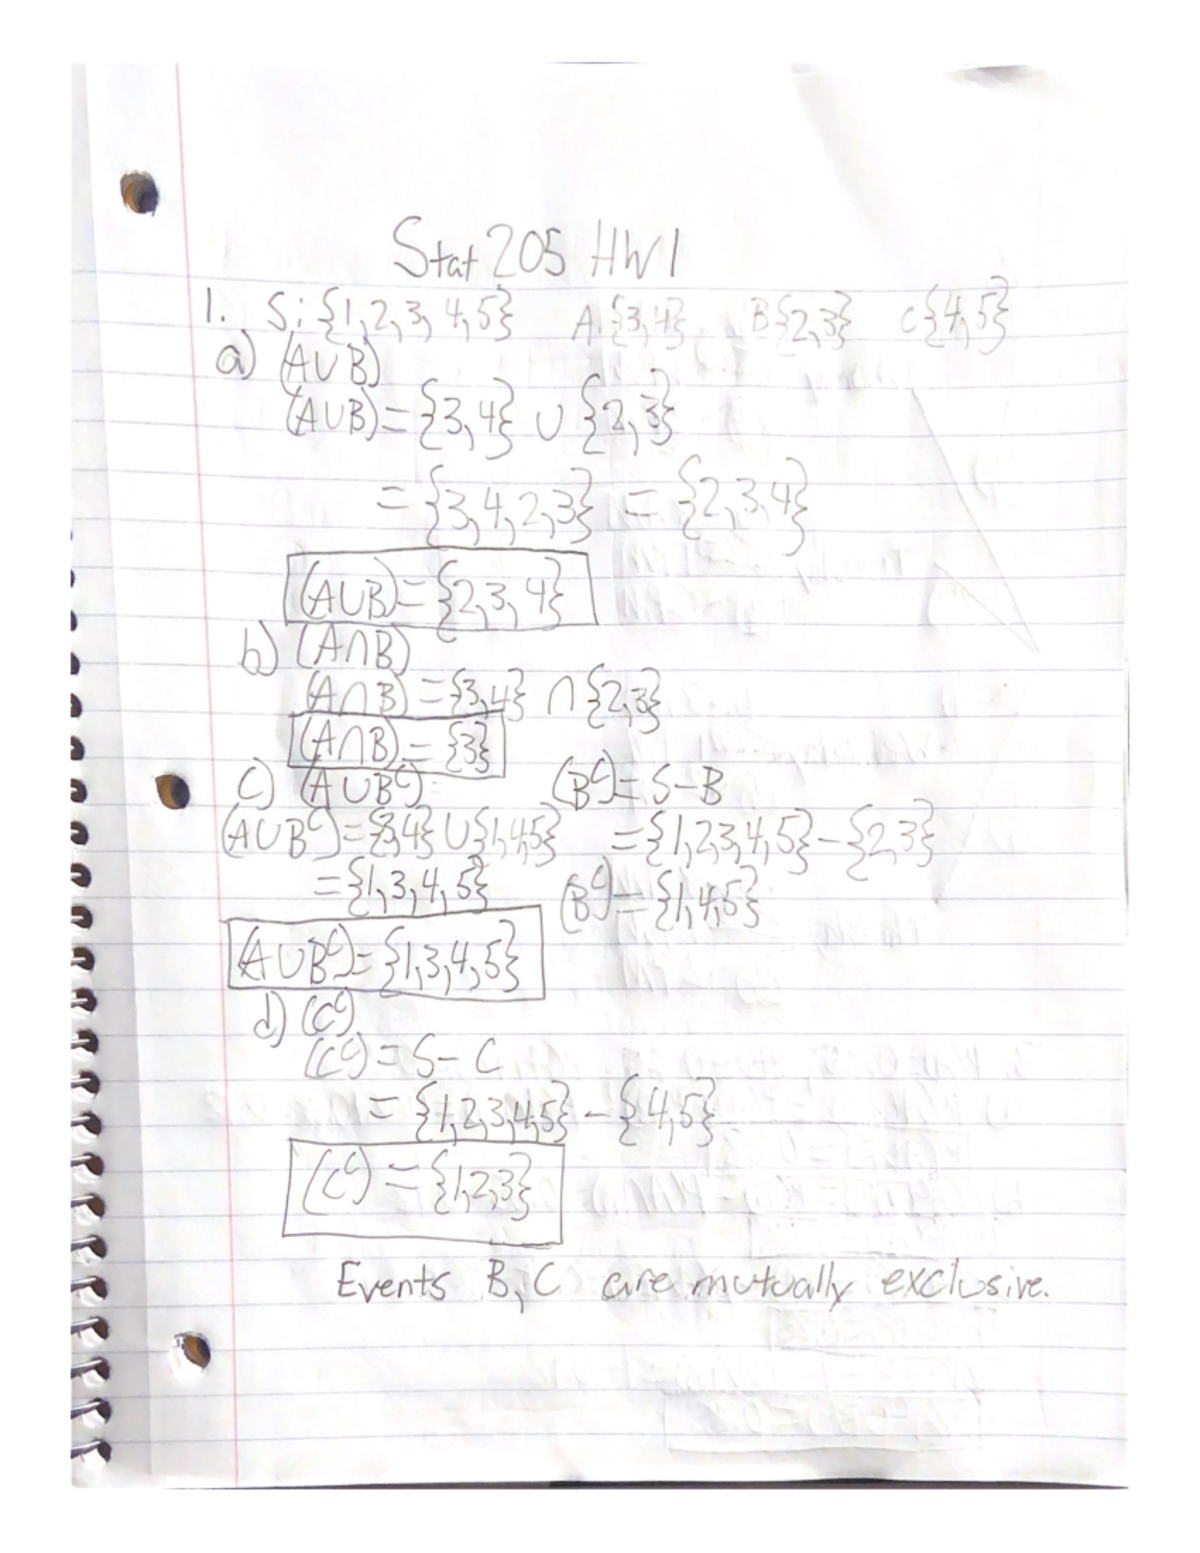 Stat 205 HW1
1. S: {1,2,3,4,5} A: {3,4} B{2,3} C{4,5}
a) (A∪B)
(A∪B)={3,4} ∪ {2,3}
={3,4,2,3} = {2,3,4}
(A∪B)={2,3,4}
b) (A∩B)
(A∩B)={3,4} ∩ {2,3}
(A∩B)={3}
c) (A∪Bᶜ) (Bᶜ)=S-B
(A∪Bᶜ)={3,4}∪{1,4,5} ={1,2,3,4,5}-{2,3}
={1,3,4,5} (Bᶜ)={1,4,5}
(A∪Bᶜ)={1,3,4,5}
d) (Cᶜ)
(Cᶜ)=S-C
={1,2,3,4,5}-{4,5}
(Cᶜ)={1,2,3}
Events B,C are mutually exclusive.